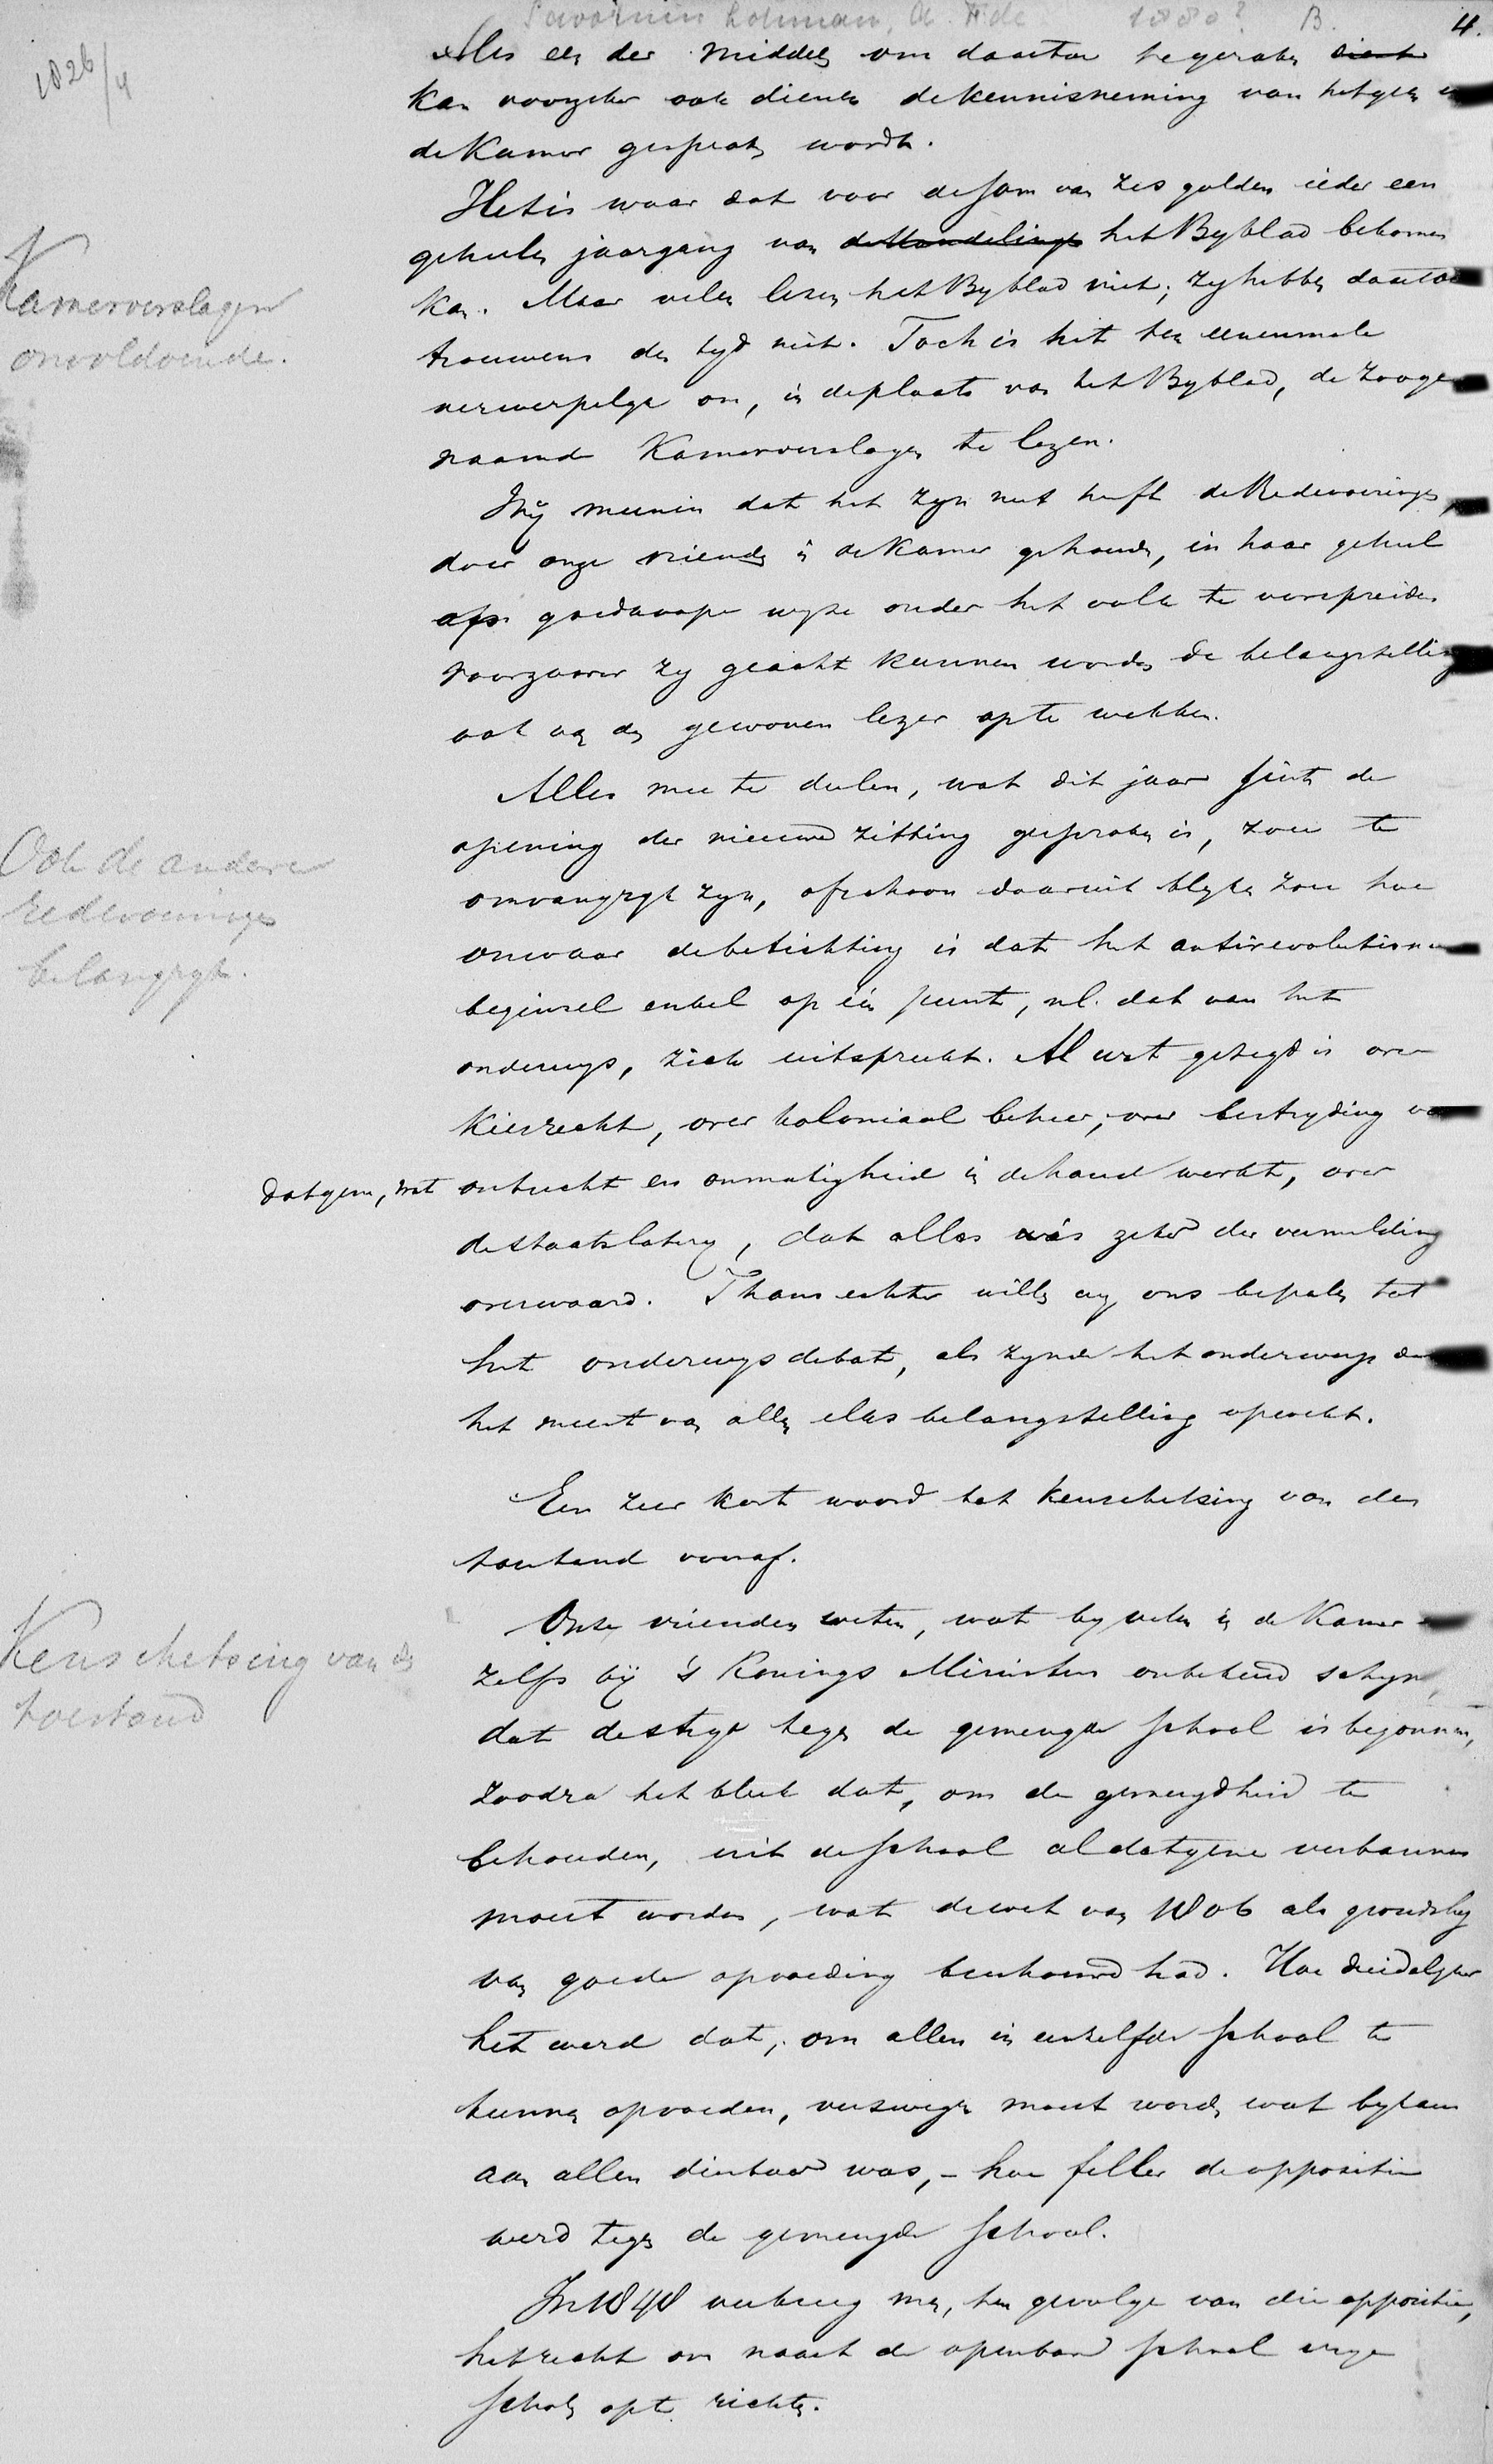 Savornin Lohman, A. F. de 1880? B. 4.
1826/4
Als een der middelen om daartoe te geraken
kan voorzeker ook dienen de kennisneming van hetgeen in
de Kamer gesproken wordt.
Het is waar dat voor de som van zes gulden ieder een
geheelen jaargang van de Handelingen het Byblad bekomen
kan. Maar velen lezen het Byblad niet; zy hebben daartoe
trouwens den tyd niet. Toch is het ten eenenmale
verwerpelyk om, in de plaats van het Byblad, de zooge
naamde Kamerverslagen te lezen.
Kamerverslagen
onvoldoende.
Wij meenen dat het zyn nut heeft de Redevoeringen,
door onze vrienden in de Kamer gehouden, in haar geheel
op goedkoope wyze onder het volk te verspreiden
voorzoover zy geacht kunnen worden de belangstelling
ook van den gewonen lezer op te wekken.
Alles mee te deelen, wat dit jaar sints de
opening der nieuwe zitting gesproken is, zou te
omvangryk zyn, ofschoon daaruit blyken zou hoe
onwaar de betichting is dat het antirevolutionair
beginsel enkel op één punt, nl. dat van het
onderwys, zich uitspreekt. Al wat gezegd is over
Kiesrecht, over koloniaal beheer, over bestryding van
datgene, wat ontucht en onmatigheid in de hand werkt, over
de staatslotery, dat alles was zeker der vermelding
overwaard. Thans echter willen wy ons bepalen tot
het onderwysdebat, als zynde het onderwerp dat
het meest van allen elks belangstelling opwekt.
Ook de andere
redevoeringen
belangryk.
Een zeer kort woord tot kenschetsing van den
toestand vooraf.
Onze vrienden weten, wat by velen in de Kamer en
zelfs bij 's Konings Ministers onbekend schynt,
dat de stryd tegen de gemengde school is begonnen,
zoodra het bleek dat, om de gemengdheid te
behouden, uit de school al datgene verbannen
moest worden, wat de wet van 1806 als grondslag
van goede opvoeding beschouwd had. Hoe duidelyker
het werd dat, om allen in eenzelfde school te
kunnen opvoeden, verzwegen moest worden wat byna
aan allen dierbaar was, - hoe feller de oppositie
werd tegen de gemengde school.
Kenschetsing van den
toestand
In 1848 verkreeg men, ten gevolge van die oppositie,
het recht om naast de openbare school eigen
scholen op te richten.